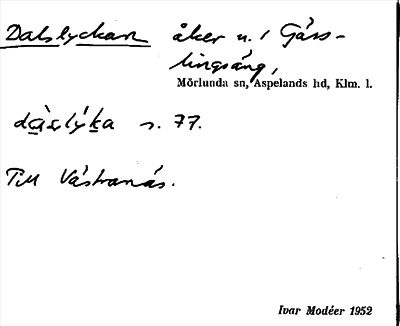 Dalslyckan åker u. / Gäss-
lingsäng,
Mörlunda sn, Aspelands hd, Klm. l.
s. 77.
Till Västranäs.
Ivar Modéer 1952